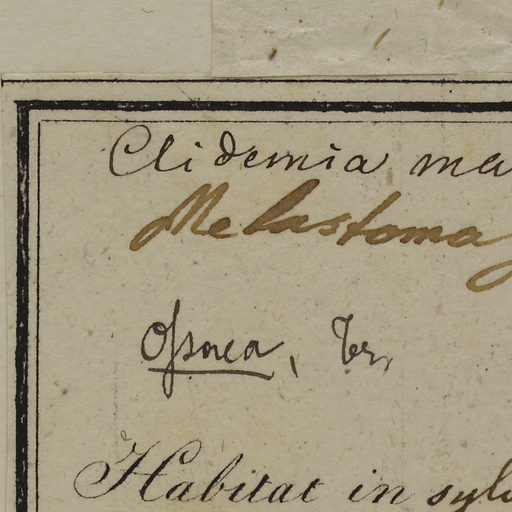 Clidemia me
Melastoma
Ossaea, Tr,
Habitat in sylv